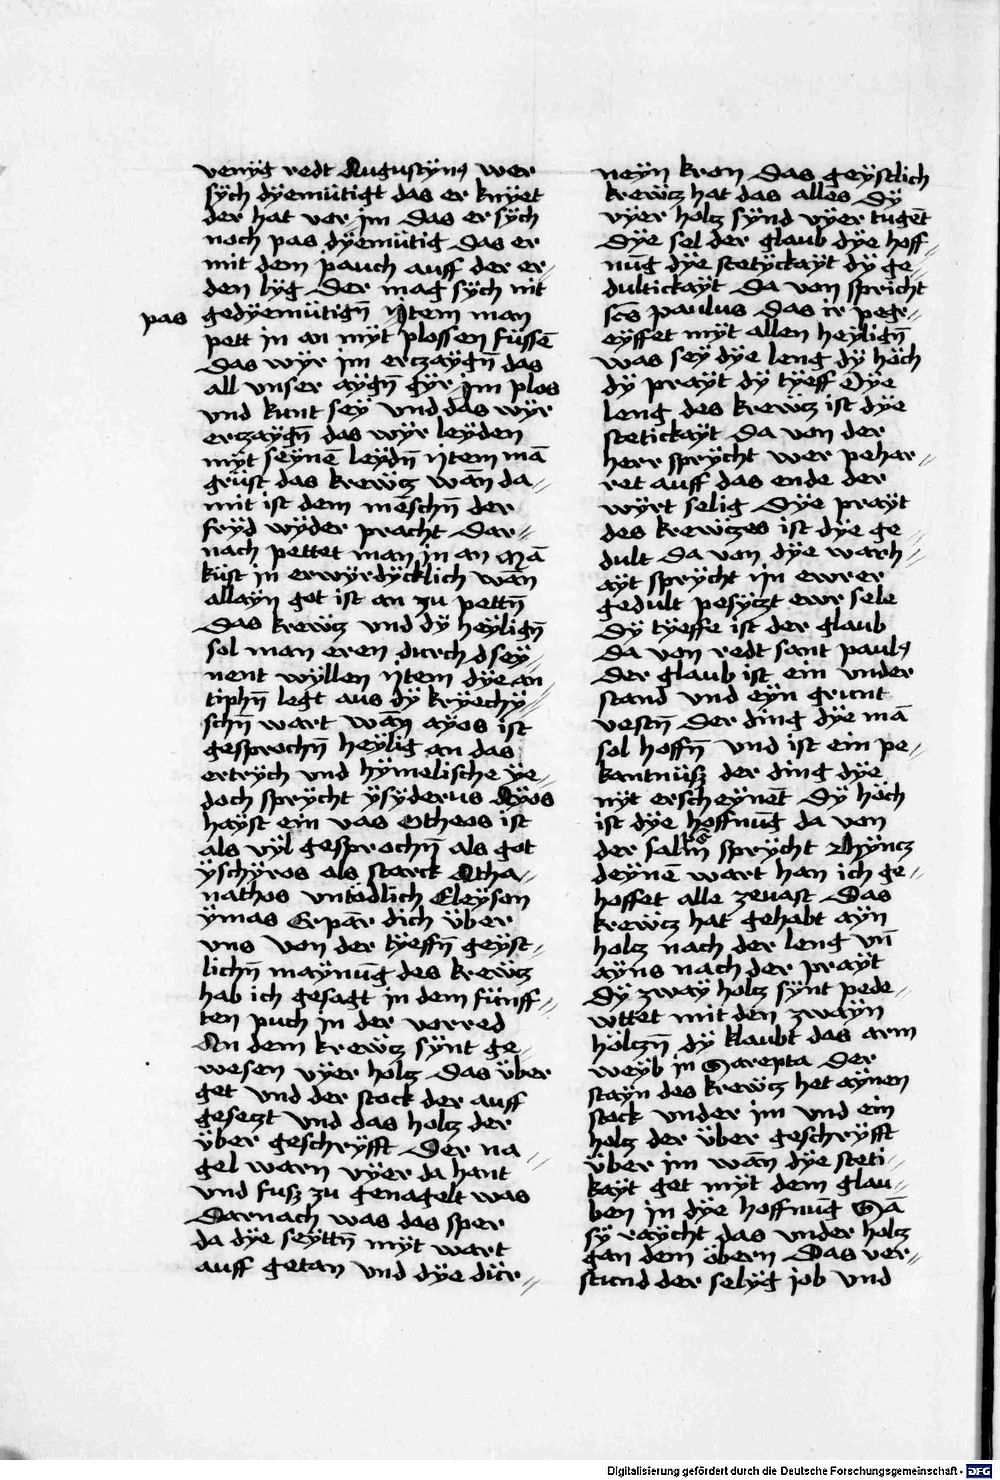 venÿg redt Augustÿnꝰ wer
sÿch dÿemütigt das er knÿet
der hat vor jm Das er sÿch
noch pas dÿemütig Das er
mit dem pauch auff der er⸗
den lÿg Der mag sÿch nit
pas
gedÿemütign̄ ÿtem man
pett in an mÿt plossen füssē
Das wÿr im erczaÿgn̄ das
all vnser aÿgn̄ gÿr jm plos
vnd kunt seÿ Vnd das wÿr
erczaÿgn̄ das wÿr leÿden
mÿt seÿnē leÿdn̄ ÿtem mā
grüst das krewtz wān da⸗
mit ist dem mēschn̄ der
frÿd wÿder pracht Dar⸗
nach pettet man in an Mā
küst in erwÿrdÿcklich wān
allaÿn got ist an zu pettn̄
Das krewtz vnd dÿ heÿlign̄
sol man eren durch d seÿ⸗
nent wÿllen ÿtem dÿe an
tiphn̄ legt aus dÿ krÿechÿ⸗
schn̄ wart wān aÿos ist
gesprochn̄ heÿlig an das
ertrÿch vnd hÿmelische ÿe⸗
doch sprÿcht ÿsÿderus Aÿos
haÿst ein vas Otheos ist
als vÿl gesprochn̄ als got
ÿschÿros als starck Atha⸗
nathos vntödlich Eleÿson
ÿmas Erpār dich über
vns von der tÿeffn̄ geÿst⸗
lichn̄ maÿnūg des krewtz
hab ich gesagt in dem fünff⸗
ten puch in der vorred
An dem krewtz sÿnt ge⸗
wesen vÿer holtz Das über
get vnd der stock der auff
gesetzt vnd das holtz der
über geschrÿfft Der na⸗
gel warn vÿer da hant
vnd fusz zu genagelt was
Darnach was das sper
da dÿe seÿttn̄ mÿt wart
auff getan vnd dÿe dür⸗
neÿn kron Das geÿstlich
krewtz hat das alles Dÿ
vÿer holtz sÿnd vÿer tugēt
Dÿe sel der glaub dÿe hoff⸗
nūg dÿe stetÿckaÿt dÿ ge⸗
dultickaÿt Da von spricht
scs̄ paulus Das ir pegr⸗
eÿffet mÿt allen heÿlign̄
was seÿ dÿe leng dÿ höch
dÿ praÿt dÿ tÿeff Dÿe
leng des krewtz ist dÿe
stetickaÿt Da von der
herr sprÿcht wer pehar⸗
ret auff das ende der
wÿrt selig Dÿe praÿt
des krewtzes ist dÿe ge⸗
dult Da von dÿe warh⸗
aÿt sprÿcht ÿn ewrer
gedult pesÿczt ewr sele
Dÿ tÿeffe ist der glaub
Da von redt sant paulꝰ
Der glaub ist ein vnder
stand vnd eÿn grunt
vestn̄ Der ding dÿe mā
sol hoffn̄ Vnd ist ein pe⸗
kantnüsz der ding dÿe
nÿt erscheÿnēt Dÿ höch
ist dÿe hoffnūg da von
der sprÿcht
deÿnē wart han ich ge⸗
hoffet alle zeuast Das
krewtz hat gehabt aÿn
holtz nach der leng vn̄
aÿns nach der praÿt
Dÿ zwaÿ holtz sÿnt pede⸗
wttet mit den zwaÿn
höltzn̄ dÿ klaubt das arm
weÿb in Sarepta Der
staÿn des krewtz het aÿnen
stock vnder im vnd ein
holtz der über geschrÿfft
über im wān dÿe steti⸗
kaÿt get mÿt dem glau⸗
ben in dÿe hoffnūg Mā
sÿ raÿcht das vnder holtz
gan dem öbern Das ver⸗
stund der selÿg job vnd
Digitalisierung gefördert durch die Deutsche Forschungsgemeinschaft - DFG